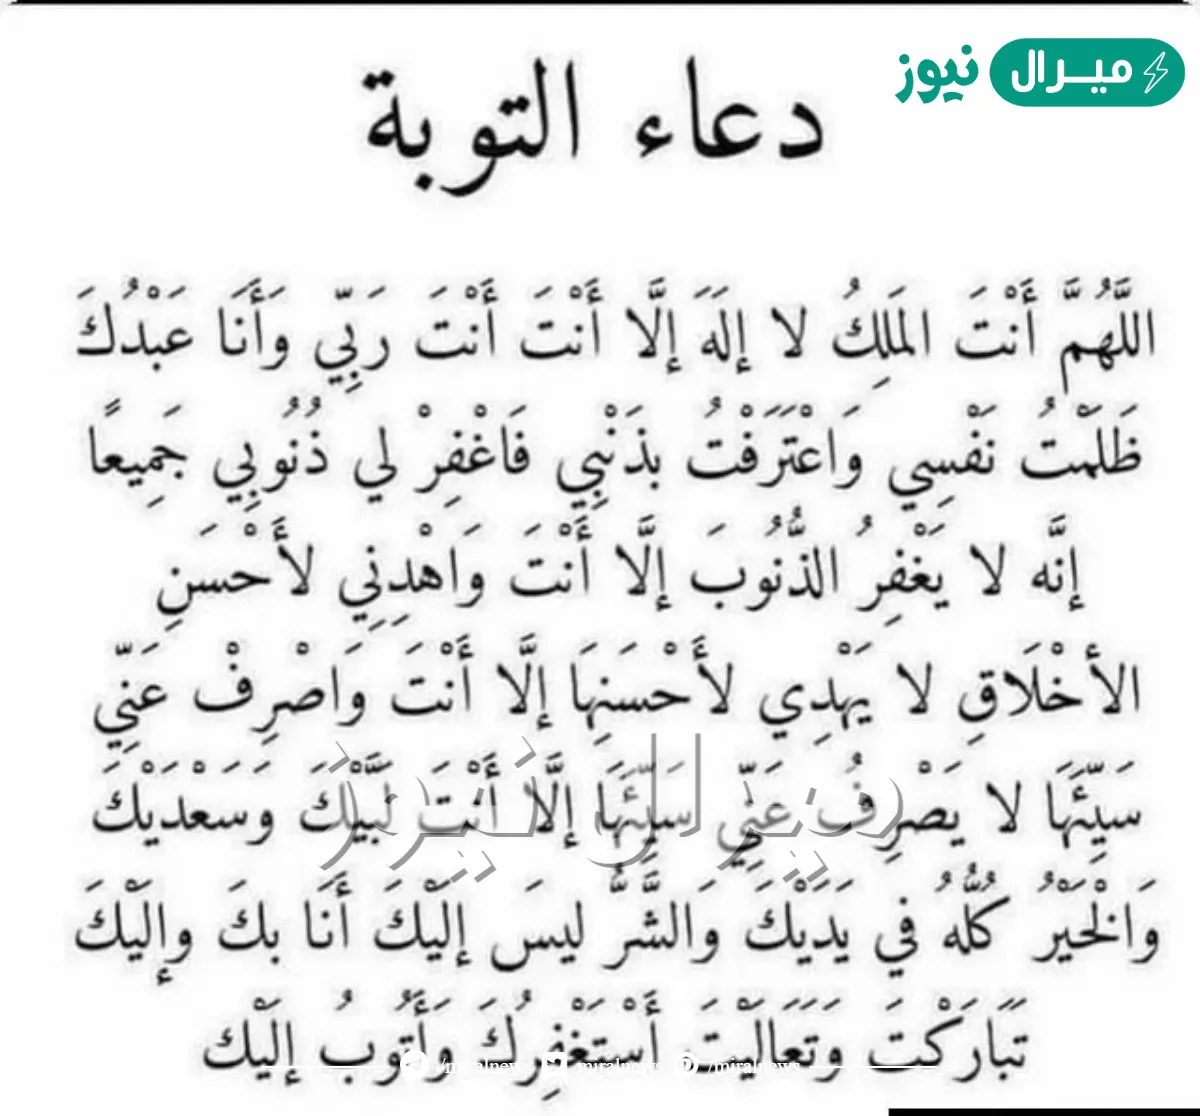 ميرال نيوز
دعاء التوبة
اللَّهُمَّ أَنْتَ المَلِكُ لا إلَهَ إلَّا أَنْتَ أَنْتَ رَبِّي وَأَنَا عَبْدُكَ
ظَلَمْتُ نَفْسِي وَاعْتَرَفْتُ بذَنْبِي فَاغْفِرْ لي ذُنُوبِي جَمِيعًا
إنَّه لا يَغْفِرُ الذُّنُوبَ إلَّا أَنْتَ وَاهْدِنِي لأَحْسَنِ
الأخْلَاقِ لا يَهْدِي لأَحْسَنِهَا إلَّا أَنْتَ وَاصْرِفْ عَنِّي
سَيِّئَهَا لا يَصْرِفُ عَنِّي سَيِّئَهَا إلَّا أَنْتَ لَبَّيْكَ وَسَعْدَيْكَ
وَالْخَيْرُ كُلُّهُ في يَدَيْكَ وَالشَّرُّ ليسَ إلَيْكَ أَنَا بكَ وإلَيْكَ
تَبَارَكْتَ وَتَعَالَيْتَ أَسْتَغْفِرُكَ وَأَتُوبُ إلَيْك
ميرال نيوز
/miralnews miralnews /miralnews